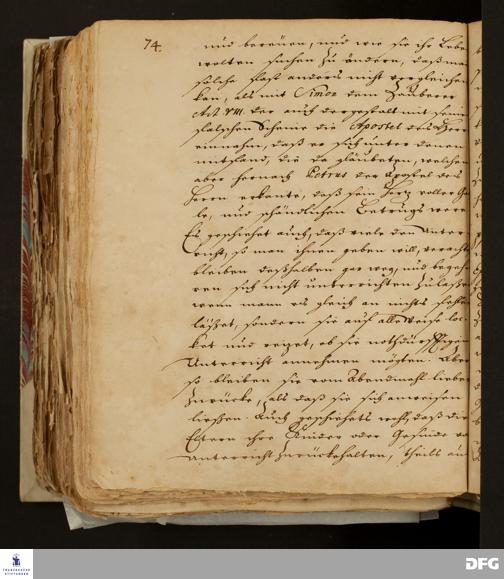 74.
und bereuen, und wie sie ihr Lebe
wolten suchen zu ändern, daß ma
solche fast anders nicht vergleichen
kan, als mit Simon dem Zauberer
Act. VIII. der auch dergestalt mit seine
falschen Scheine die Apostel des Herr
einnahm, daß er sich unter denen
mitfand, die da gläubeten, welchen
aber hernach Petrus der Apostel des
Herrn erkante, daß sein Hertz voller Ga
le, und schändlichen Betrugs were
Es geschiehet auch, daß viele den Unter
richt, so man ihnen geben will, veracht
bleiben deßhalben gar weg, und begeh
ren sich nicht unterrichten zulaße
wenn mann es gleich an nichts fehle
läßet, sondern sie auf alle Weise loc
ket und reitzet, ob sie nothdürfftigen
Unterricht annehmen mögten. Aber
so bleiben sie vom Abendmahl lieber
zurücke, als daß sie sich anweisen
ließen. Auch geschiehets wohl, daß die
Eltern ihre Kinder oder Gesinde vo
Unterricht zurückehalten, theils au
FRANCKESCHE
STIFTUNGEN
DFG